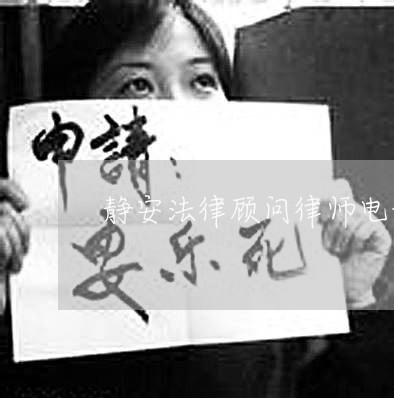 申請：
静安法律顾问律师电
安乐死